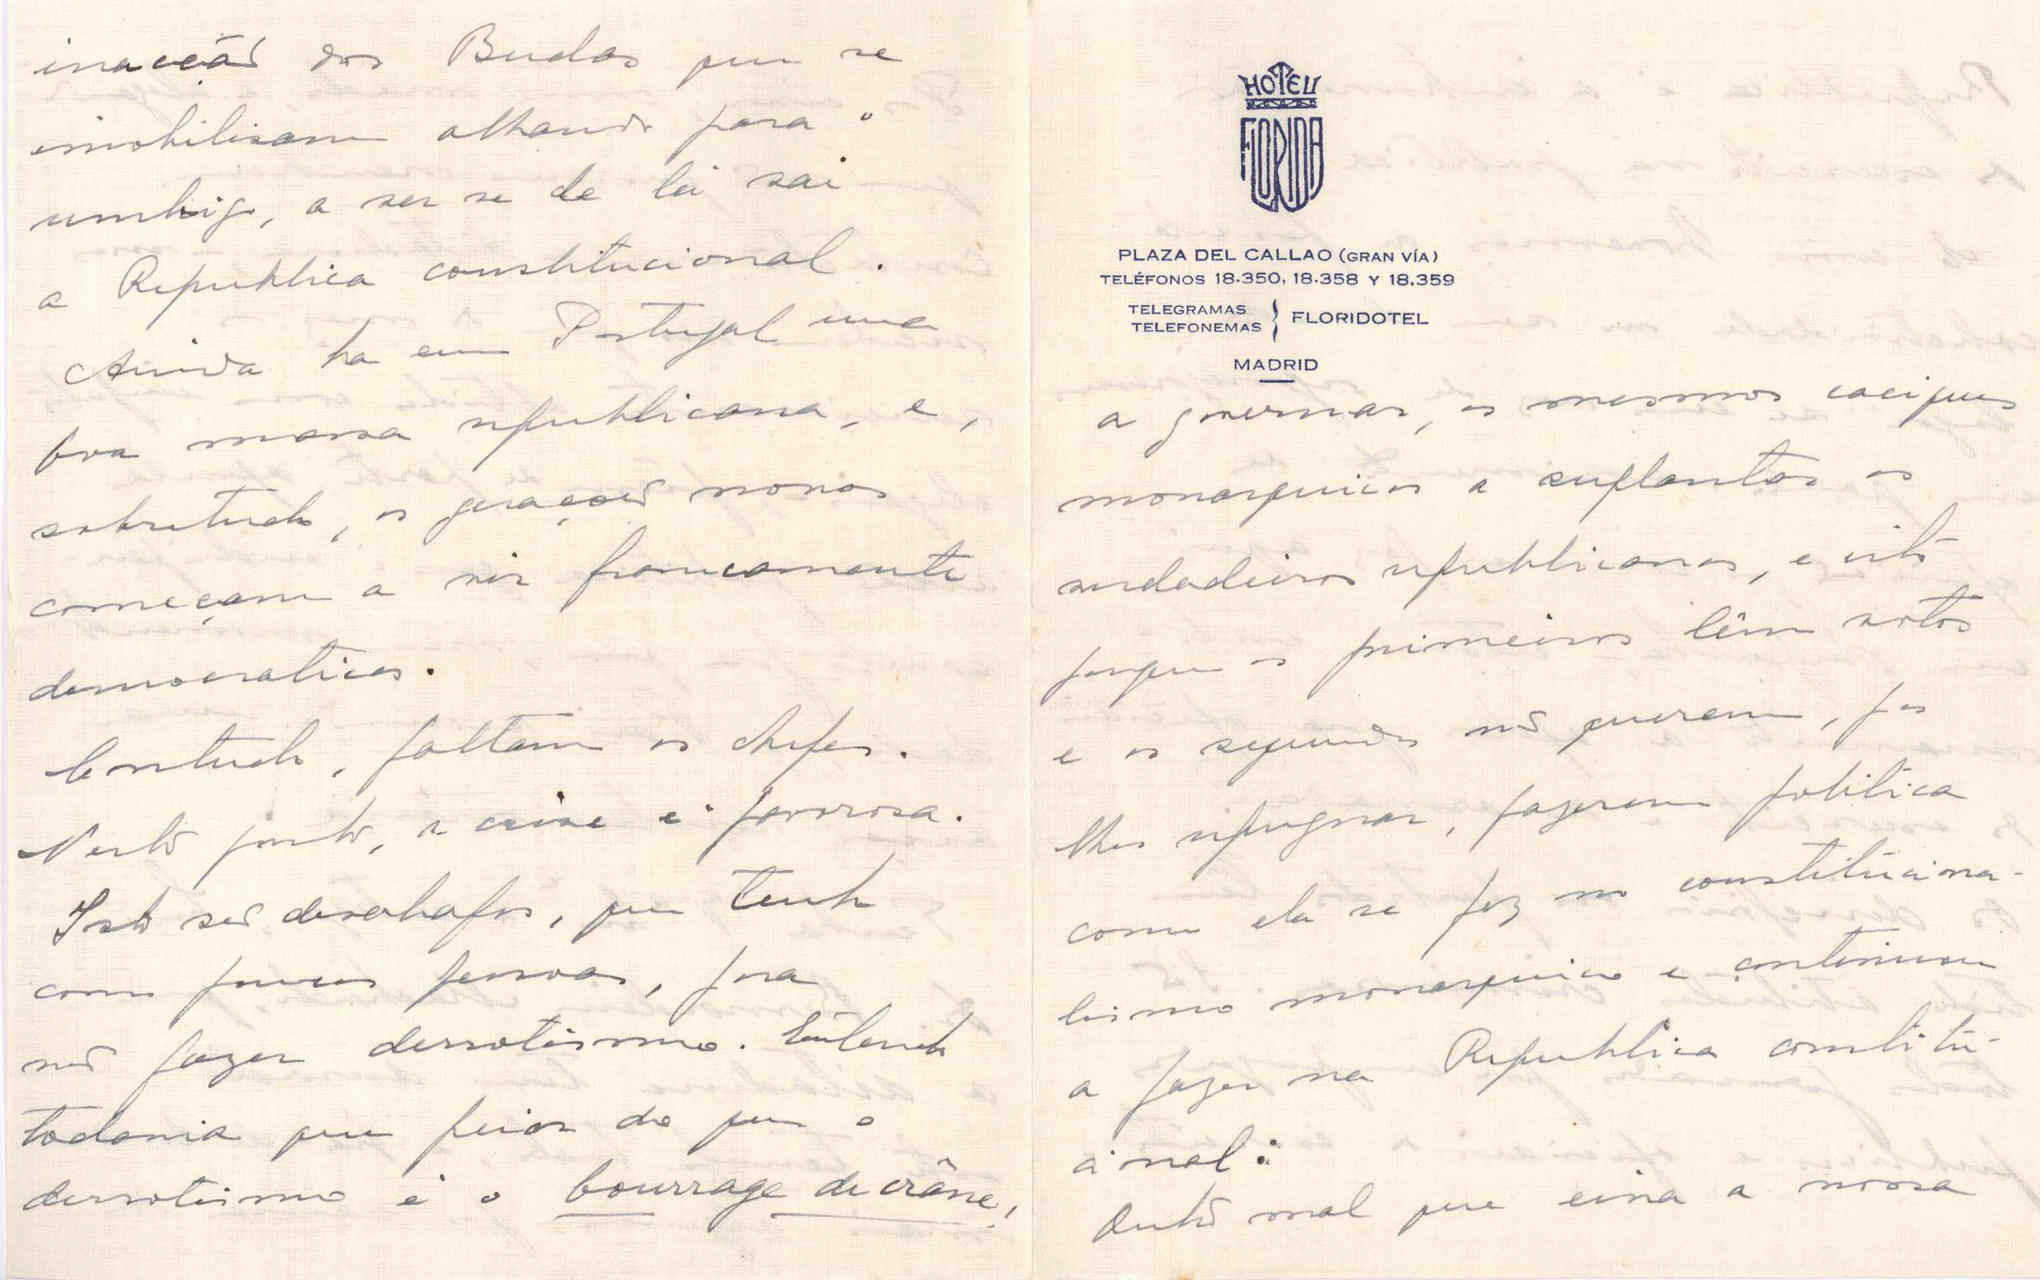 inacção dos Budas que se
imobilisam olhando para o
umbigo, a ver se de lá sai
a Republica constitucional.
Ainda ha em Portugal uma
boa massa republicana, e,
sobretudo, as gerações novas
começam a vir francamente
democraticas.
Contudo, faltam os chefes.
Neste ponto, a crise é pavorosa.
Isto são desabafos, que tenho
com poucas pessoas, para
não fazer derrotismo. Entendo
todavia que peior do que o
derrotismo é o bourrage de crâne,
HOTEL
FLORIDA
PLAZA DEL CALLAO (GRAN VÍA)
TELÉFONOS 18.350, 18.358 Y 18.359
TELEGRAMAS
TELEFONEMAS } FLORIDOTEL
MADRID
a governar, os mesmos caciques
monarquicos a suplantar os
verdadeiros republicanos, e isto
porque os primeiros têm votos
e os segundos não querem, por
lhes repugnar, fazerem politica
como ela se fez no constituciona-
lismo monarquico e continuou
a fazer na Republica constitu-
cional.
Outro mal que eiva a nossa